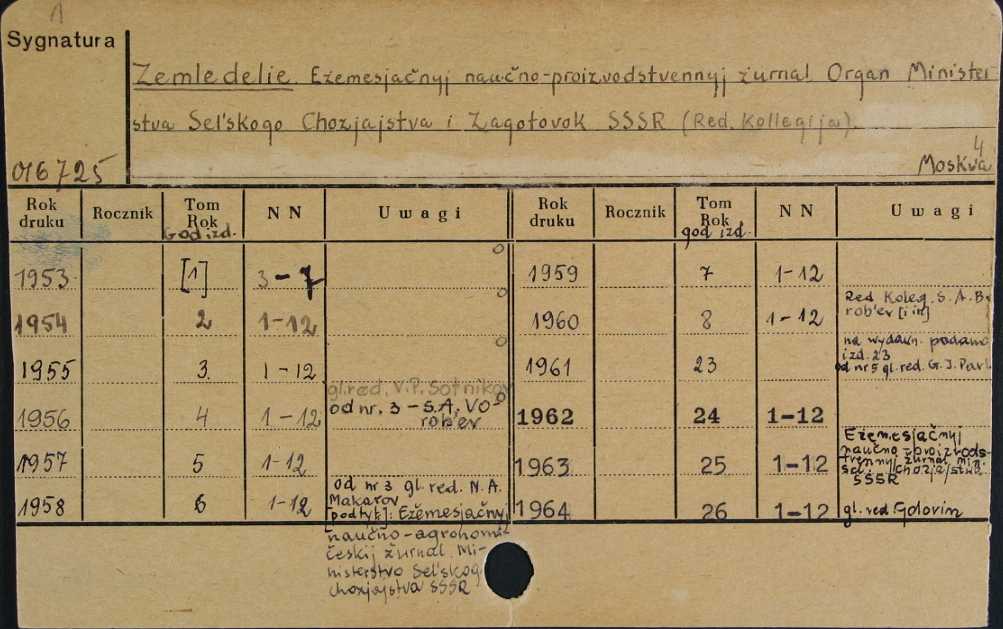 1
Sygnatura
Zemledelie. Ežemesjačnyj naučno-proizvodstvennyj žurnal Organ Minister-
stva Sel'skogo Chozjajstva i Zagotovok SSSR (Red. Kollegija).
4
016725 Moskva
Rok druku Rocznik Tom Rok God izd. NN Uwagi Rok druku Rocznik Tom Rok god izd. NN Uwagi
1953 [1] 3-7 1959 7 1-12
1954 2 1-12 1960 8 1-12 Red Koleg. S. A. Bo
rob'ev [i in]
1955 3 1-12 1961 23 na wydawn. podano
izd. 23
od nr 5 gl. red. G. I. Pavl
gl. red. V. P. Sotnikov
1956 4 1-12 od nr. 3 - S. A. Vo 1962 24 1-12
rob'ev
1957 5 1-12 1963 25 1-12 Ežemesjačnyj
naučno-proizvods-
tvennyj žurnal Min.
SSSR
1958 6 1-12 od nr 3 gl. red. N. A. 1964 26 1-12 gl. red Golovin
Makarov
[podtyt]: Ežemesjačnyj
naučno-agronomi-
českij žurnal. Mi-
nisterstvo Sel'skog
chozjajstva SSSR